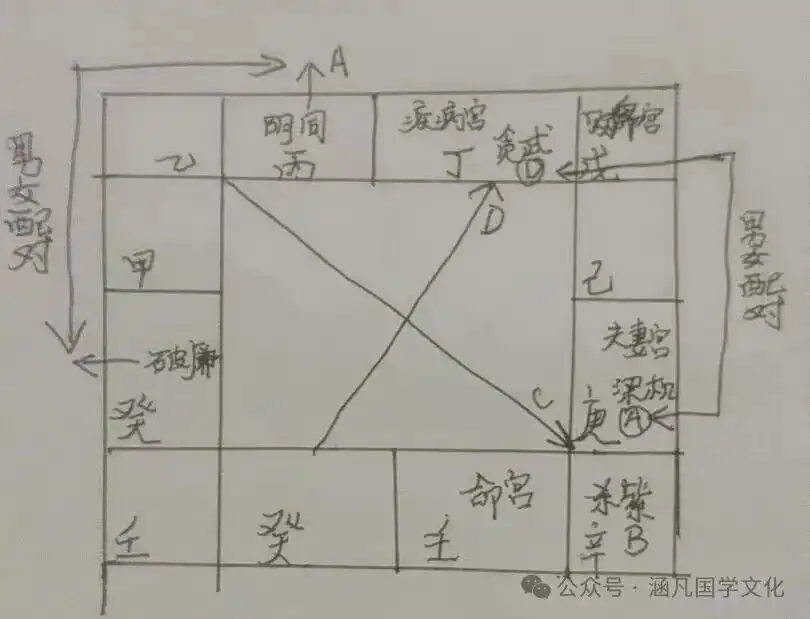 A
阴同
丙
疾病宫
贪武
丁
D
宫
戌
乙
男女配对
甲
己
男女配对
D
破廉
癸
夫妻宫
梁机
庚
A
C
壬
癸
命宫
壬
杀紫
辛
B
公众号·涵凡国学文化